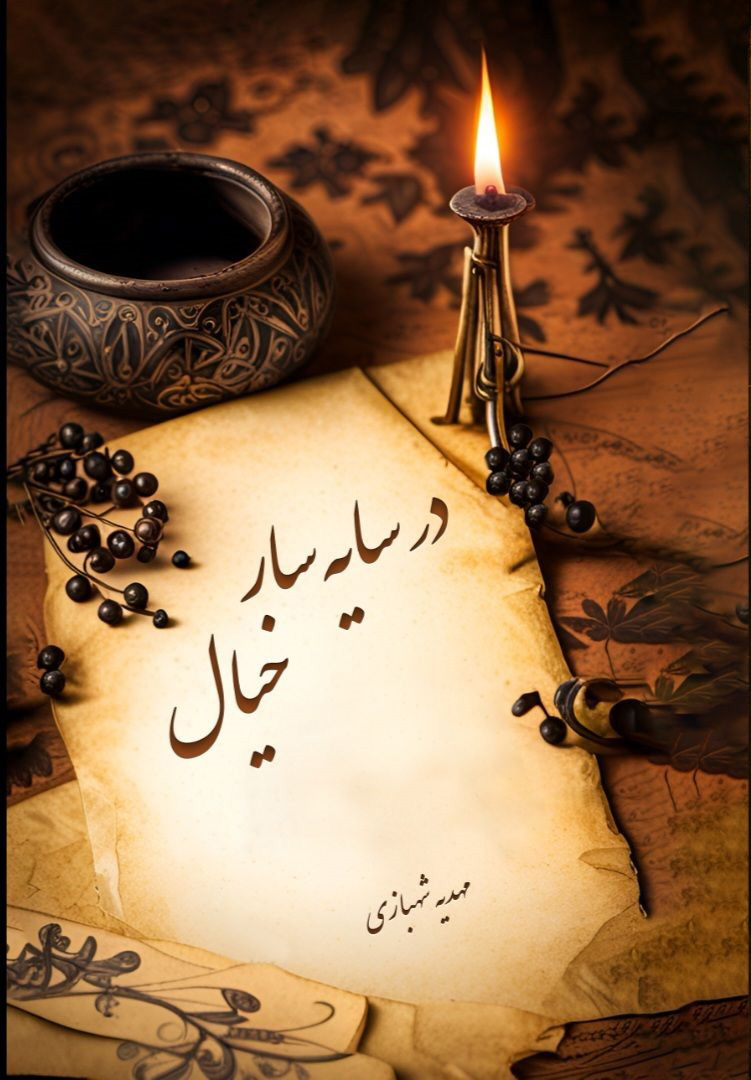 در سایه سار
خیال
مهدیه شهبازی